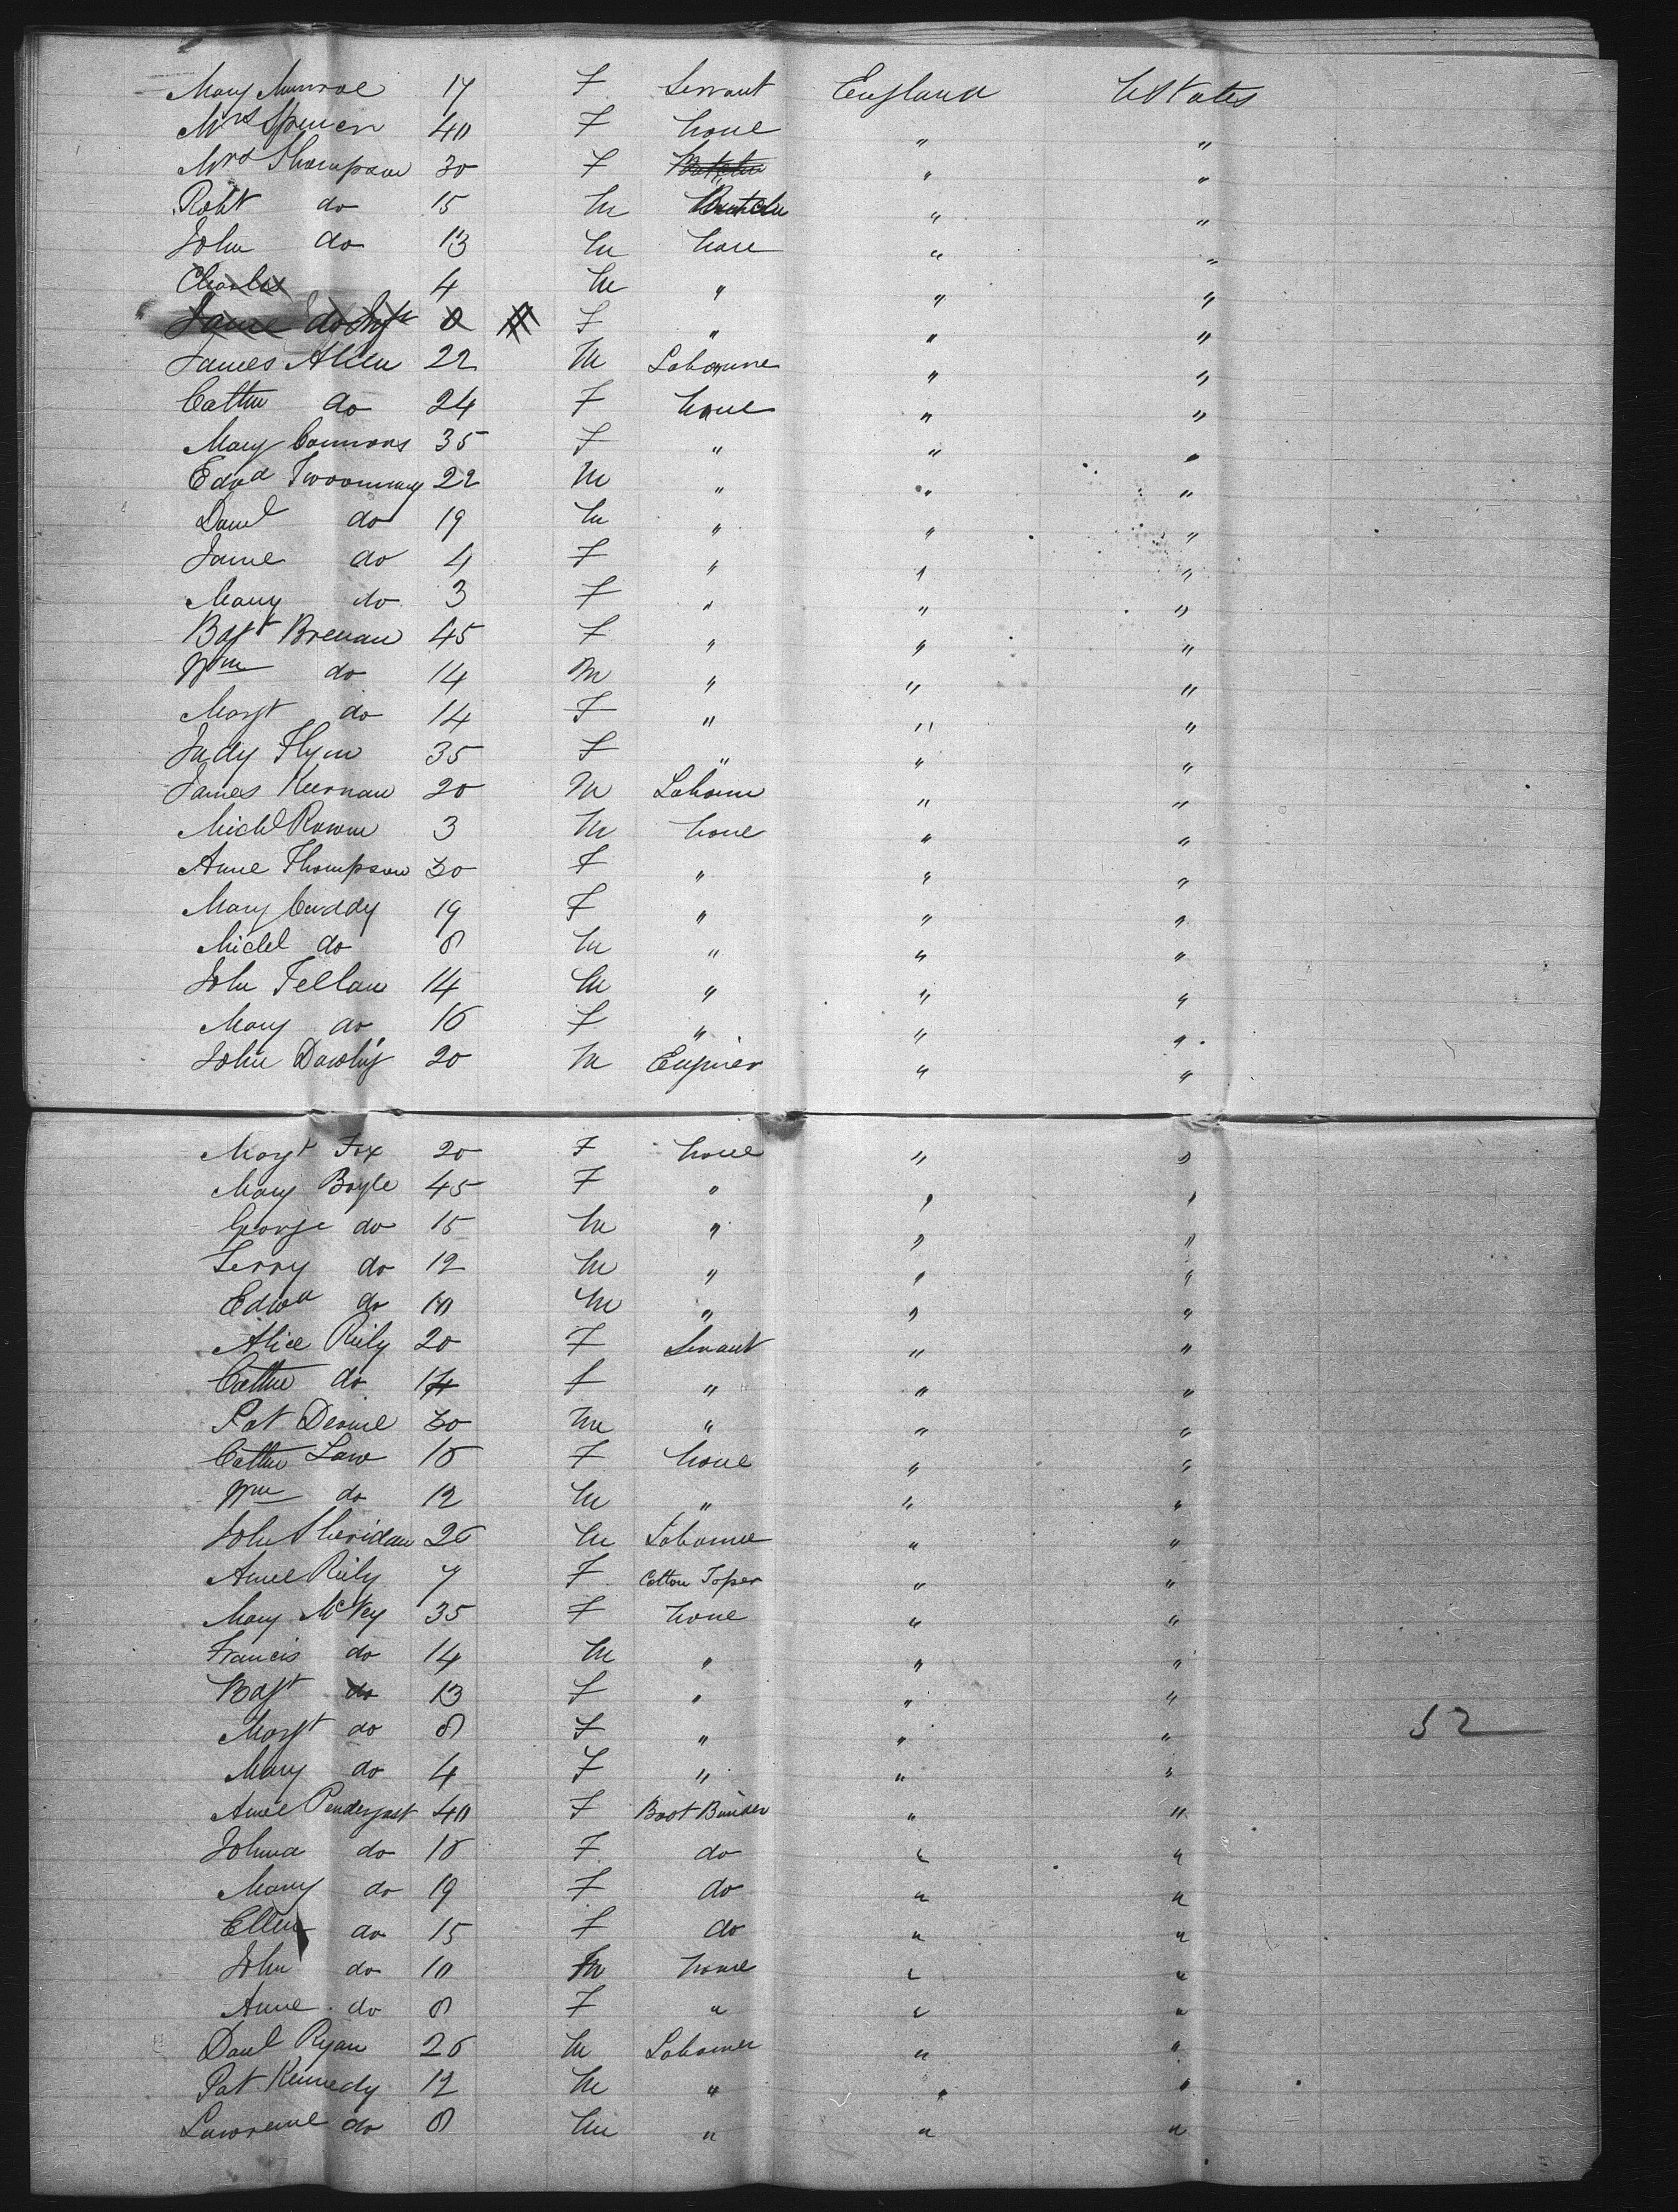 Mary Munroe 17 F Servant England UStates
Mrs Spencer 40 F None " "
Mrs Thompson 30 F " " "
Robt do 15 M Butcher " "
John do 13 M None " "
Charles 4 M " " "
Jane do Inft F " " "
James Allen 22 M Labourer " "
Cathe do 24 F None " "
Mary Connors 35 F " " "
Edwd Twoomey 22 M " " "
Danl do 19 M " " "
Jane do 4 F " " "
Mary do 3 F " " "
Bgt Brenan 45 F " " "
Wm do 14 M " " "
Margt do 14 F " " "
Judy Flynn 35 F " " "
James Kiernan 20 M Labourer " "
Michl Rowen 3 M None " "
Anne Thompson 30 F " " "
Mary Cuddy 19 F " " "
Michl do 8 M " " "
John Fellan 14 M " " "
Mary do 16 F " " "
John Dowling 20 M Enginer " "
Margt Fox 20 F None " "
Mary Boyle 45 F " " "
George do 15 M " " "
Terry do 12 M " " "
Edwd do 10 M " " "
Alice Riely 20 F Servant " "
Cathe do 14 F " " "
Pat 30 M " " "
Cathe Law 18 F None " "
Wm do 12 M " " "
John Sheridan 26 M Labourer " "
Anne Riely 7 F Cotton " "
Mary McVey 35 F None " "
Francis do 14 M " " "
Bgt do 13 F " " "
Margt do 8 F " " " 52
Mary do 4 F " " "
Anne Pendergast 40 F Boot Binder " "
Johna do 18 F do " "
Mary do 19 F do " "
Ellen do 15 F do " "
John do 10 M None " "
Anne do 8 F " " "
Danl Ryan 26 M Labourer " "
Pat Kennedy 12 M " " "
Lawrence do 8 M " " "